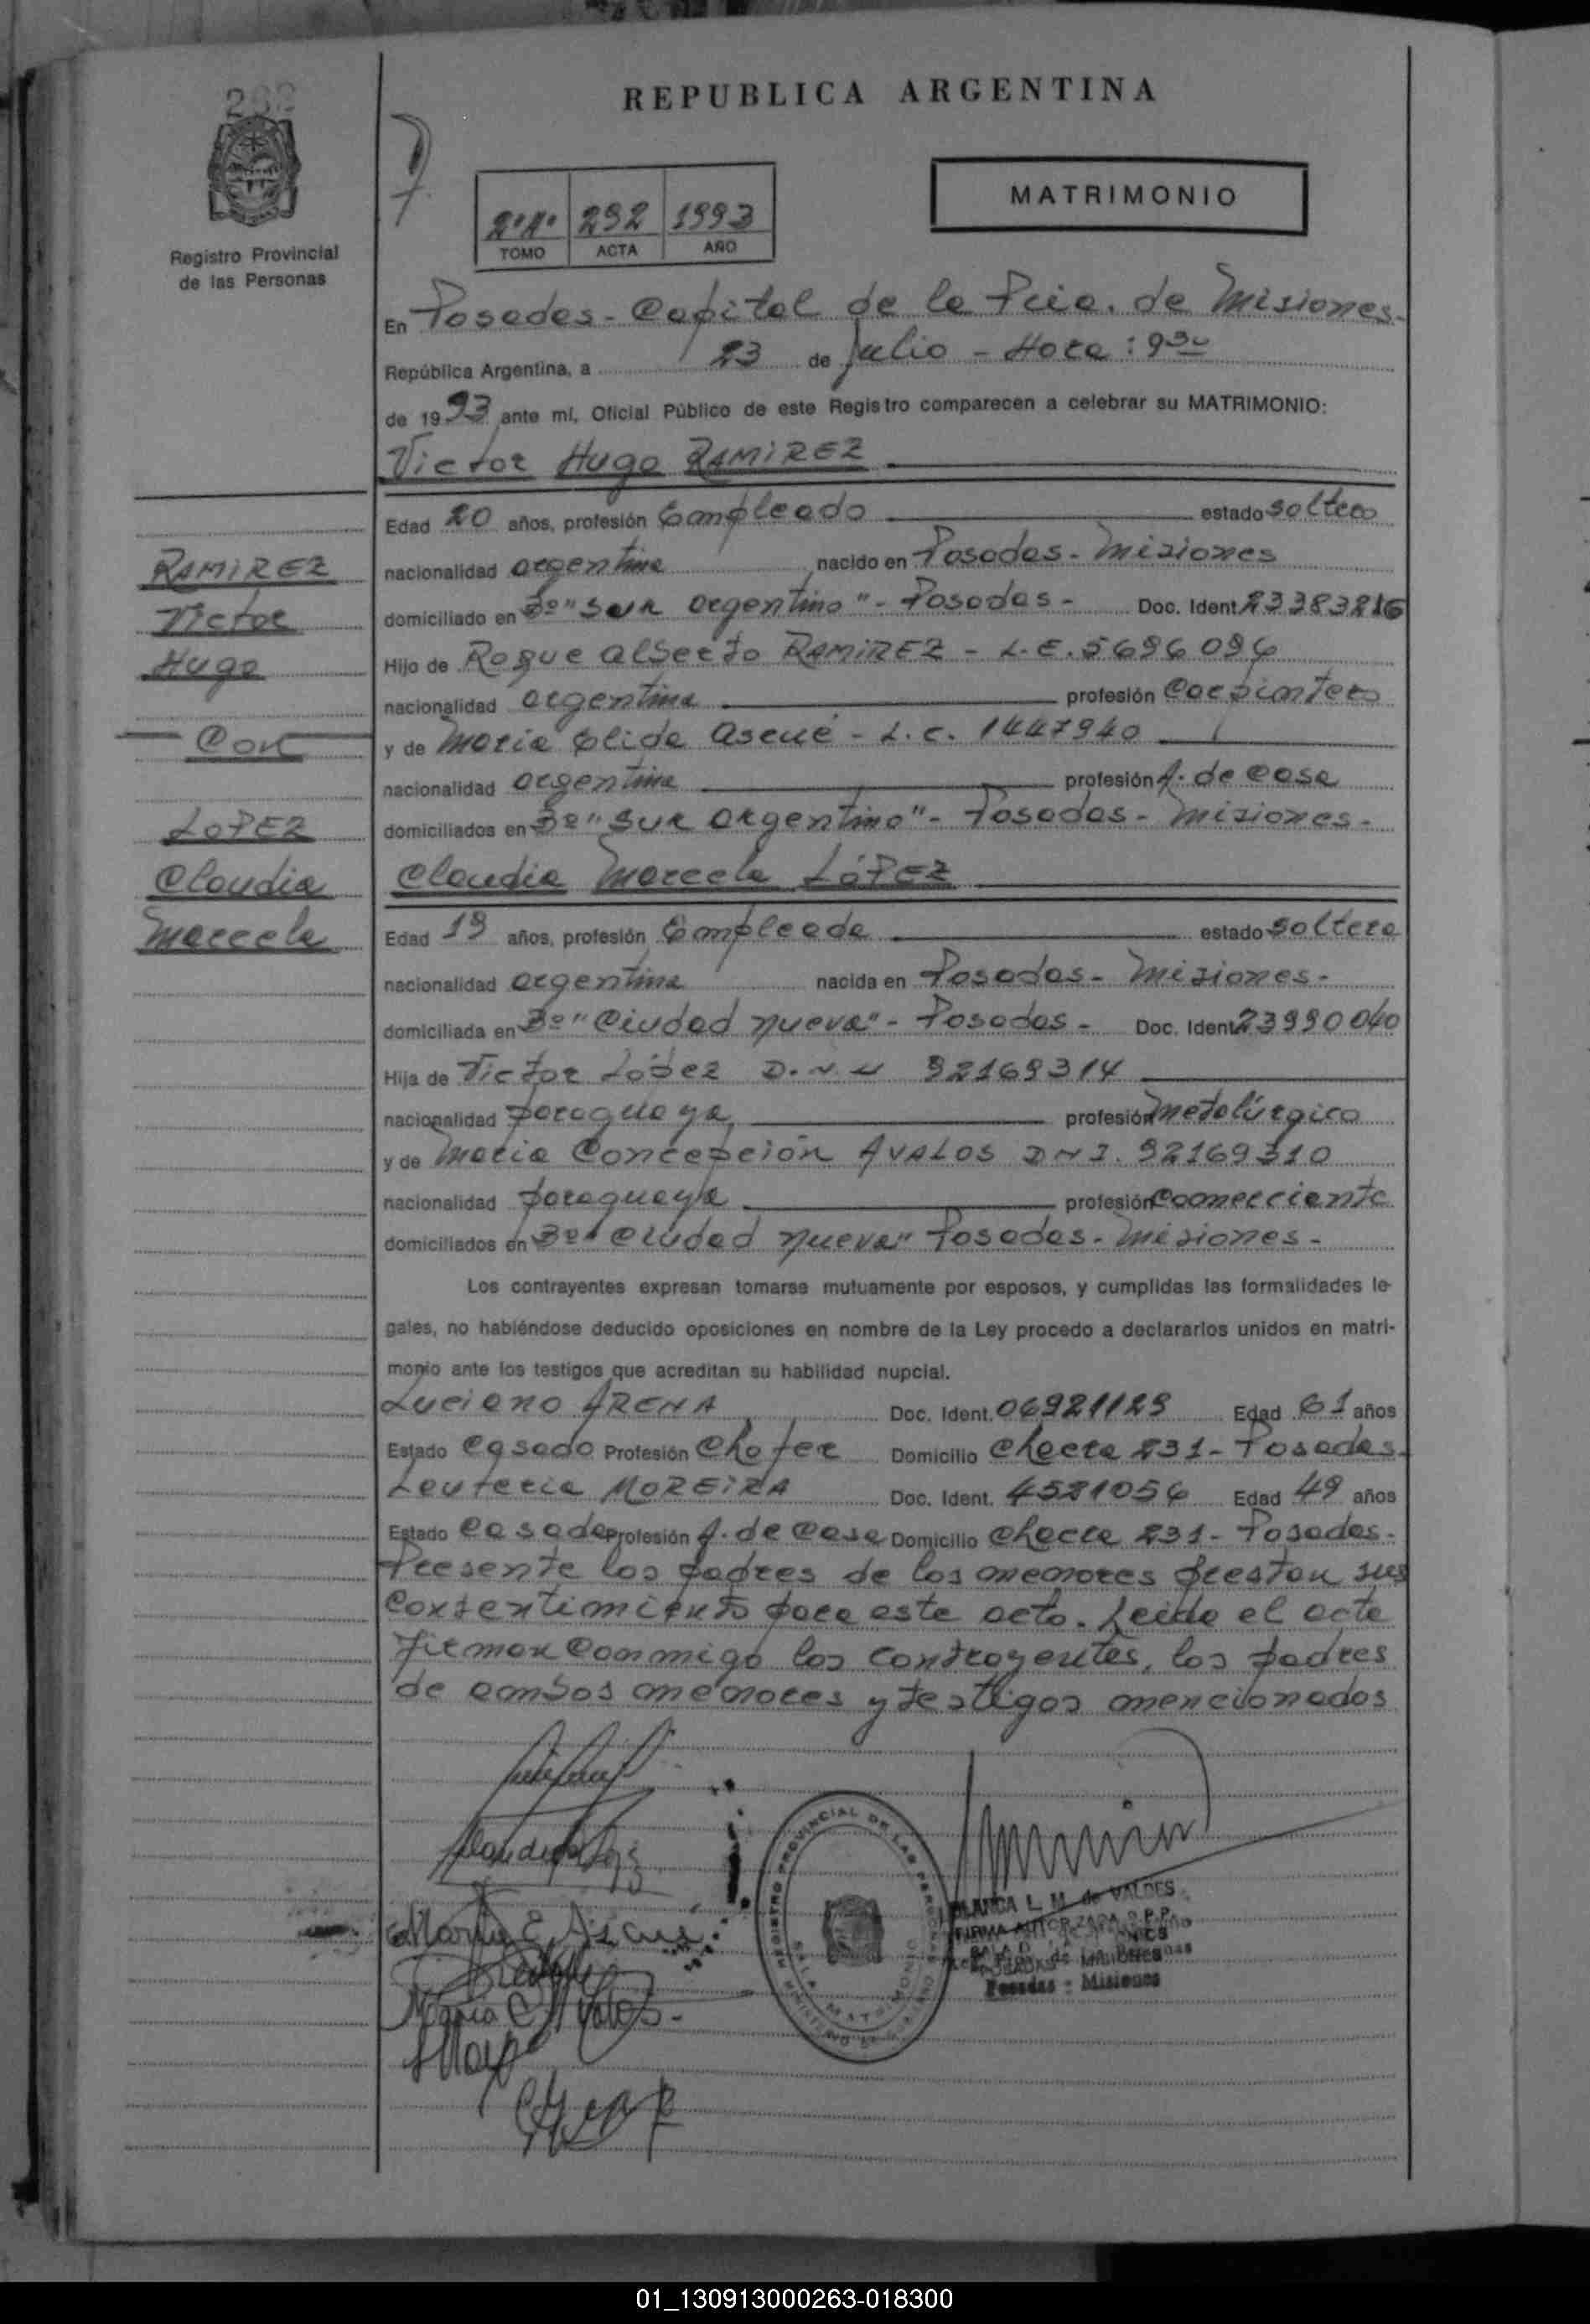 REPUBLICA ARGENTINA
Registro Provincial
de las Personas
MATRIMONIO
2º Aº 292 1993
TOMO ACTA AÑO
En Posadas - Capital de la Pcia. de Misiones -
República Argentina, a 23 de Julio - Hora: 9 30
de 1993 ante mí, Oficial Público de este Registro comparecen a celebrar su MATRIMONIO:
Victor Hugo RAMIREZ
Edad 20 años, profesión Empleado estado soltero
nacionalidad argentina nacido en Posadas - Misiones
domiciliado en Bº "Sur argentino" - Posadas - Doc. Ident 23383216
Hijo de Roque Alberto RAMIREZ - L.E. 5696094
nacionalidad argentina profesión Carpintero
y de Maria Elida Ascué - L.C. 1447940
nacionalidad argentina profesión A. de casa
domiciliados en Bº "Sur Argentino" - Posadas - Misiones -
Claudia Marcela LÓPEZ
Edad 19 años, profesión Empleada estado soltera
nacionalidad argentina nacida en Posadas - Misiones -
domiciliada en Bº "Ciudad nueva" - Posadas - Doc. Ident 23990040
Hija de Victor López D.N.I 92169314
nacionalidad paraguaya profesión metalúrgico
y de Maria Concepción AVALOS DNI. 92169310
nacionalidad paraguaya profesión Comerciante
domiciliados en Bº "Ciudad nueva" Posadas - Misiones -
Los contrayentes expresan tomarse mutuamente por esposos, y cumplidas las formalidades le-
gales, no habiéndose deducido oposiciones en nombre de la Ley procedo a declararlos unidos en matri-
monio ante los testigos que acreditan su habilidad nupcial.
Luciano ARENA Doc. Ident. 06921129 Edad 61 años
Estado casado Profesión Chofer Domicilio Checta 231 - Posadas -
Leuteria MOREIRA Doc. Ident. 4521056 Edad 49 años
Estado casada Profesión A. de casa Domicilio Checta 231 - Posadas -
Presente los padres de los menores prestan sus
consentimiento para este acto. Leida el acta
firman conmigo los contrayentes, los padres
de ambos menores y testigos mencionados
RAMIREZ
Victor
Hugo
Con
LOPEZ
Claudia
Marcela
Maria E. Ascué
Maria C Avalos -
REGISTRO PROVINCIAL DE LAS PERSONAS
SALA MATRIMONIO
BLANCA L. M. de VALDES
FIRMA AUTORIZADA R.P.P.
Posadas - Misiones
01_130913000263-018300